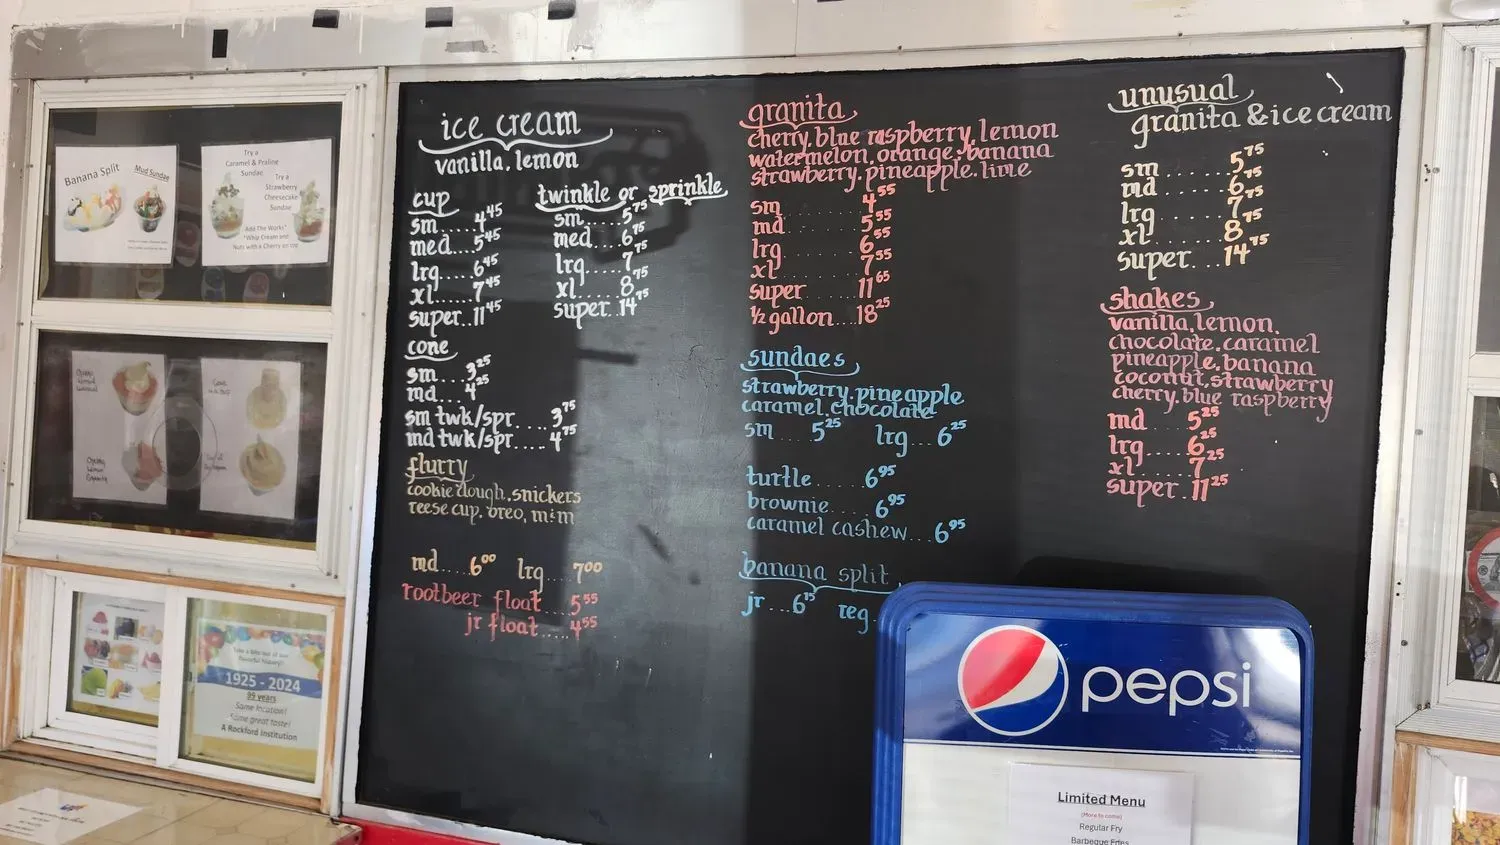 ice cream
vanilla, lemon
cup
sm 4 45
med... 5 45
lrg.... 6 45
xl...... 7 45
super.. 11 45
twinkle or sprinkle
sm... 5 75
med... 6 75
lrg..... 7 75
xl..... 8 75
super.. 14 75
cone
sm... 3 25
md... 4 25
sm twk/spr.... 3 75
md twk/spr.... 4 75
flurry
cookie dough, snickers
reese cup, oreo, m&m
md.... 6 00 lrg.... 7 00
rootbeer float... 5 55
jr float..... 4 55
granita
cherry, blue raspberry, lemon
watermelon, orange, banana
strawberry, pineapple, lime
sm........ 4 55
md........ 5 55
lrg........ 6 55
xl........ 7 55
super..... 11 65
½ gallon... 18 25
sundaes
strawberry, pineapple
caramel, chocolate
sm.... 5 25 lrg... 6 25
turtle..... 6 95
brownie..... 6 95
caramel cashew... 6 95
banana split
jr... 6 15 reg.
unusual
granita & ice cream
sm....... 5 75
md....... 6 75
lrg....... 7 75
xl........ 8 75
super... 14 75
shakes
vanilla, lemon,
chocolate, caramel
pineapple, banana
coconut, strawberry
cherry, blue raspberry
md.... 5 25
lrg.... 6 25
xl..... 7 25
super. 11 25
Banana Split
Mud Sundae
Try a
Caramel & Praline
Sundae
Try a
Strawberry
Cheesecake
Sundae
Add The Works"
"Whip Cream and
Nuts with a Cherry on top
Take a bite out of our
flavorful history!
1925 - 2024
99 years
Same location!
Same great taste!
A Rockford Institution
pepsi
Limited Menu
(More to come)
Regular Fry
Barbeque Fries